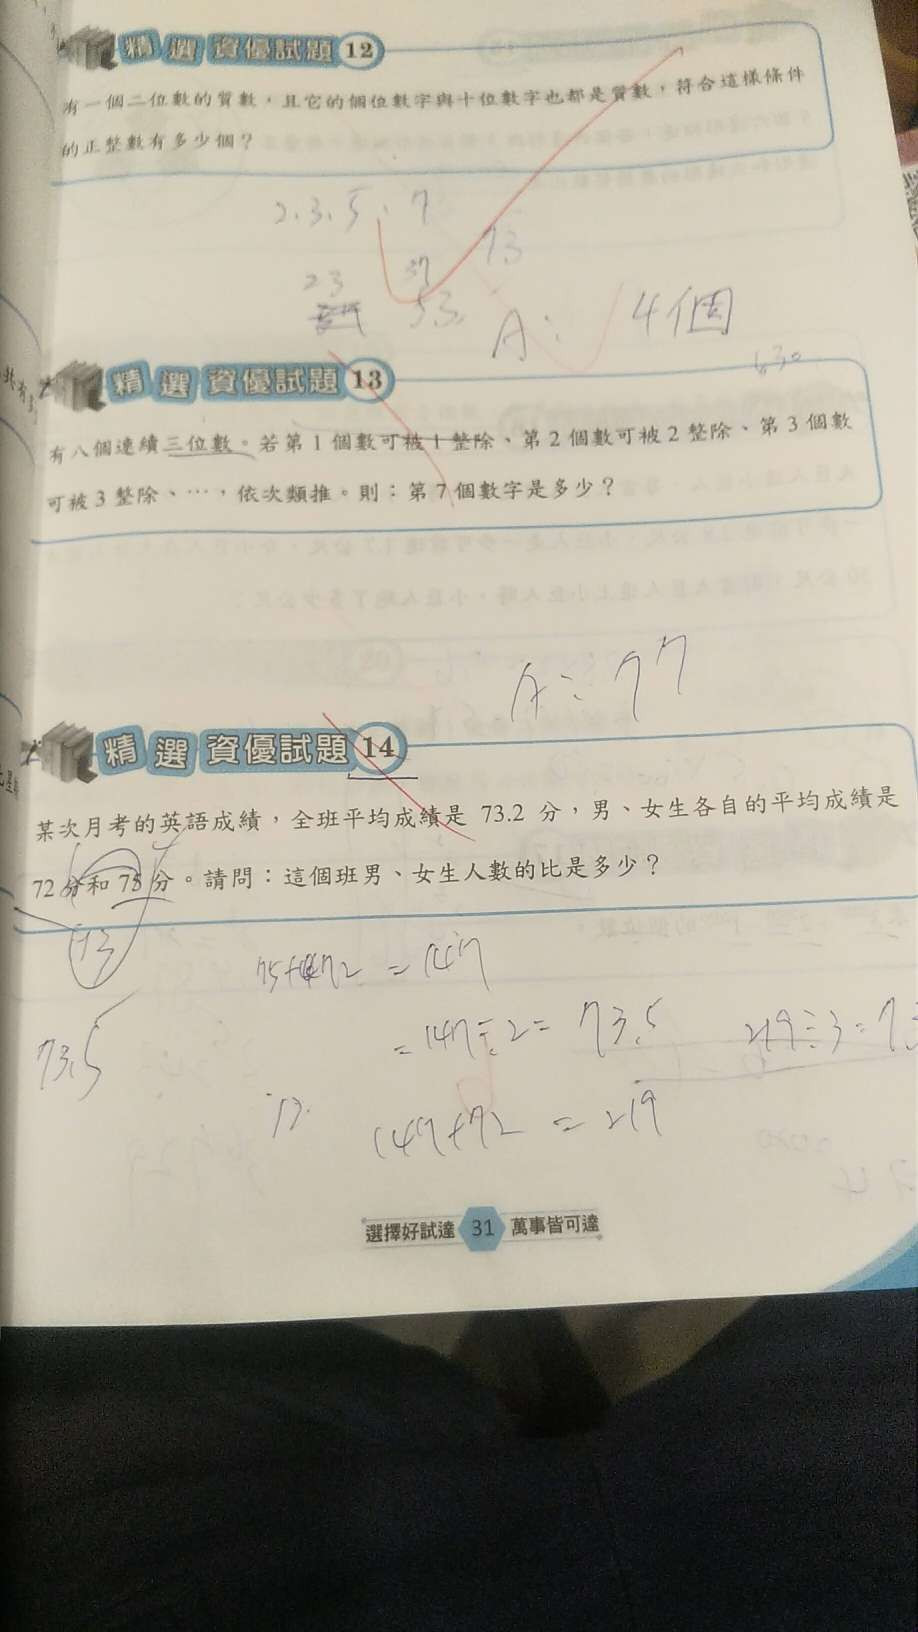 精選資優試題 12
有一個二位數的質數，且它的個位數字與十位數字也都是質數，符合這樣條件
的正整數有多少個？
2.3.5.7
23 37 73
53
A: 4個
630
精選資優試題 13
有八個連續三位數。若第1個數可被1整除、第2個數可被2整除、第3個數
可被3整除、…，依次類推。則：第7個數字是多少？
A: 77
精選資優試題 14
某次月考的英語成績，全班平均成績是 73.2 分，男、女生各自的平均成績是
72 分和 75 分。請問：這個班男、女生人數的比是多少？
73
75+72 = 147
73.5
= 147÷2 = 73.5
219÷3=7
147+72 = 219
選擇好試達 31 萬事皆可達